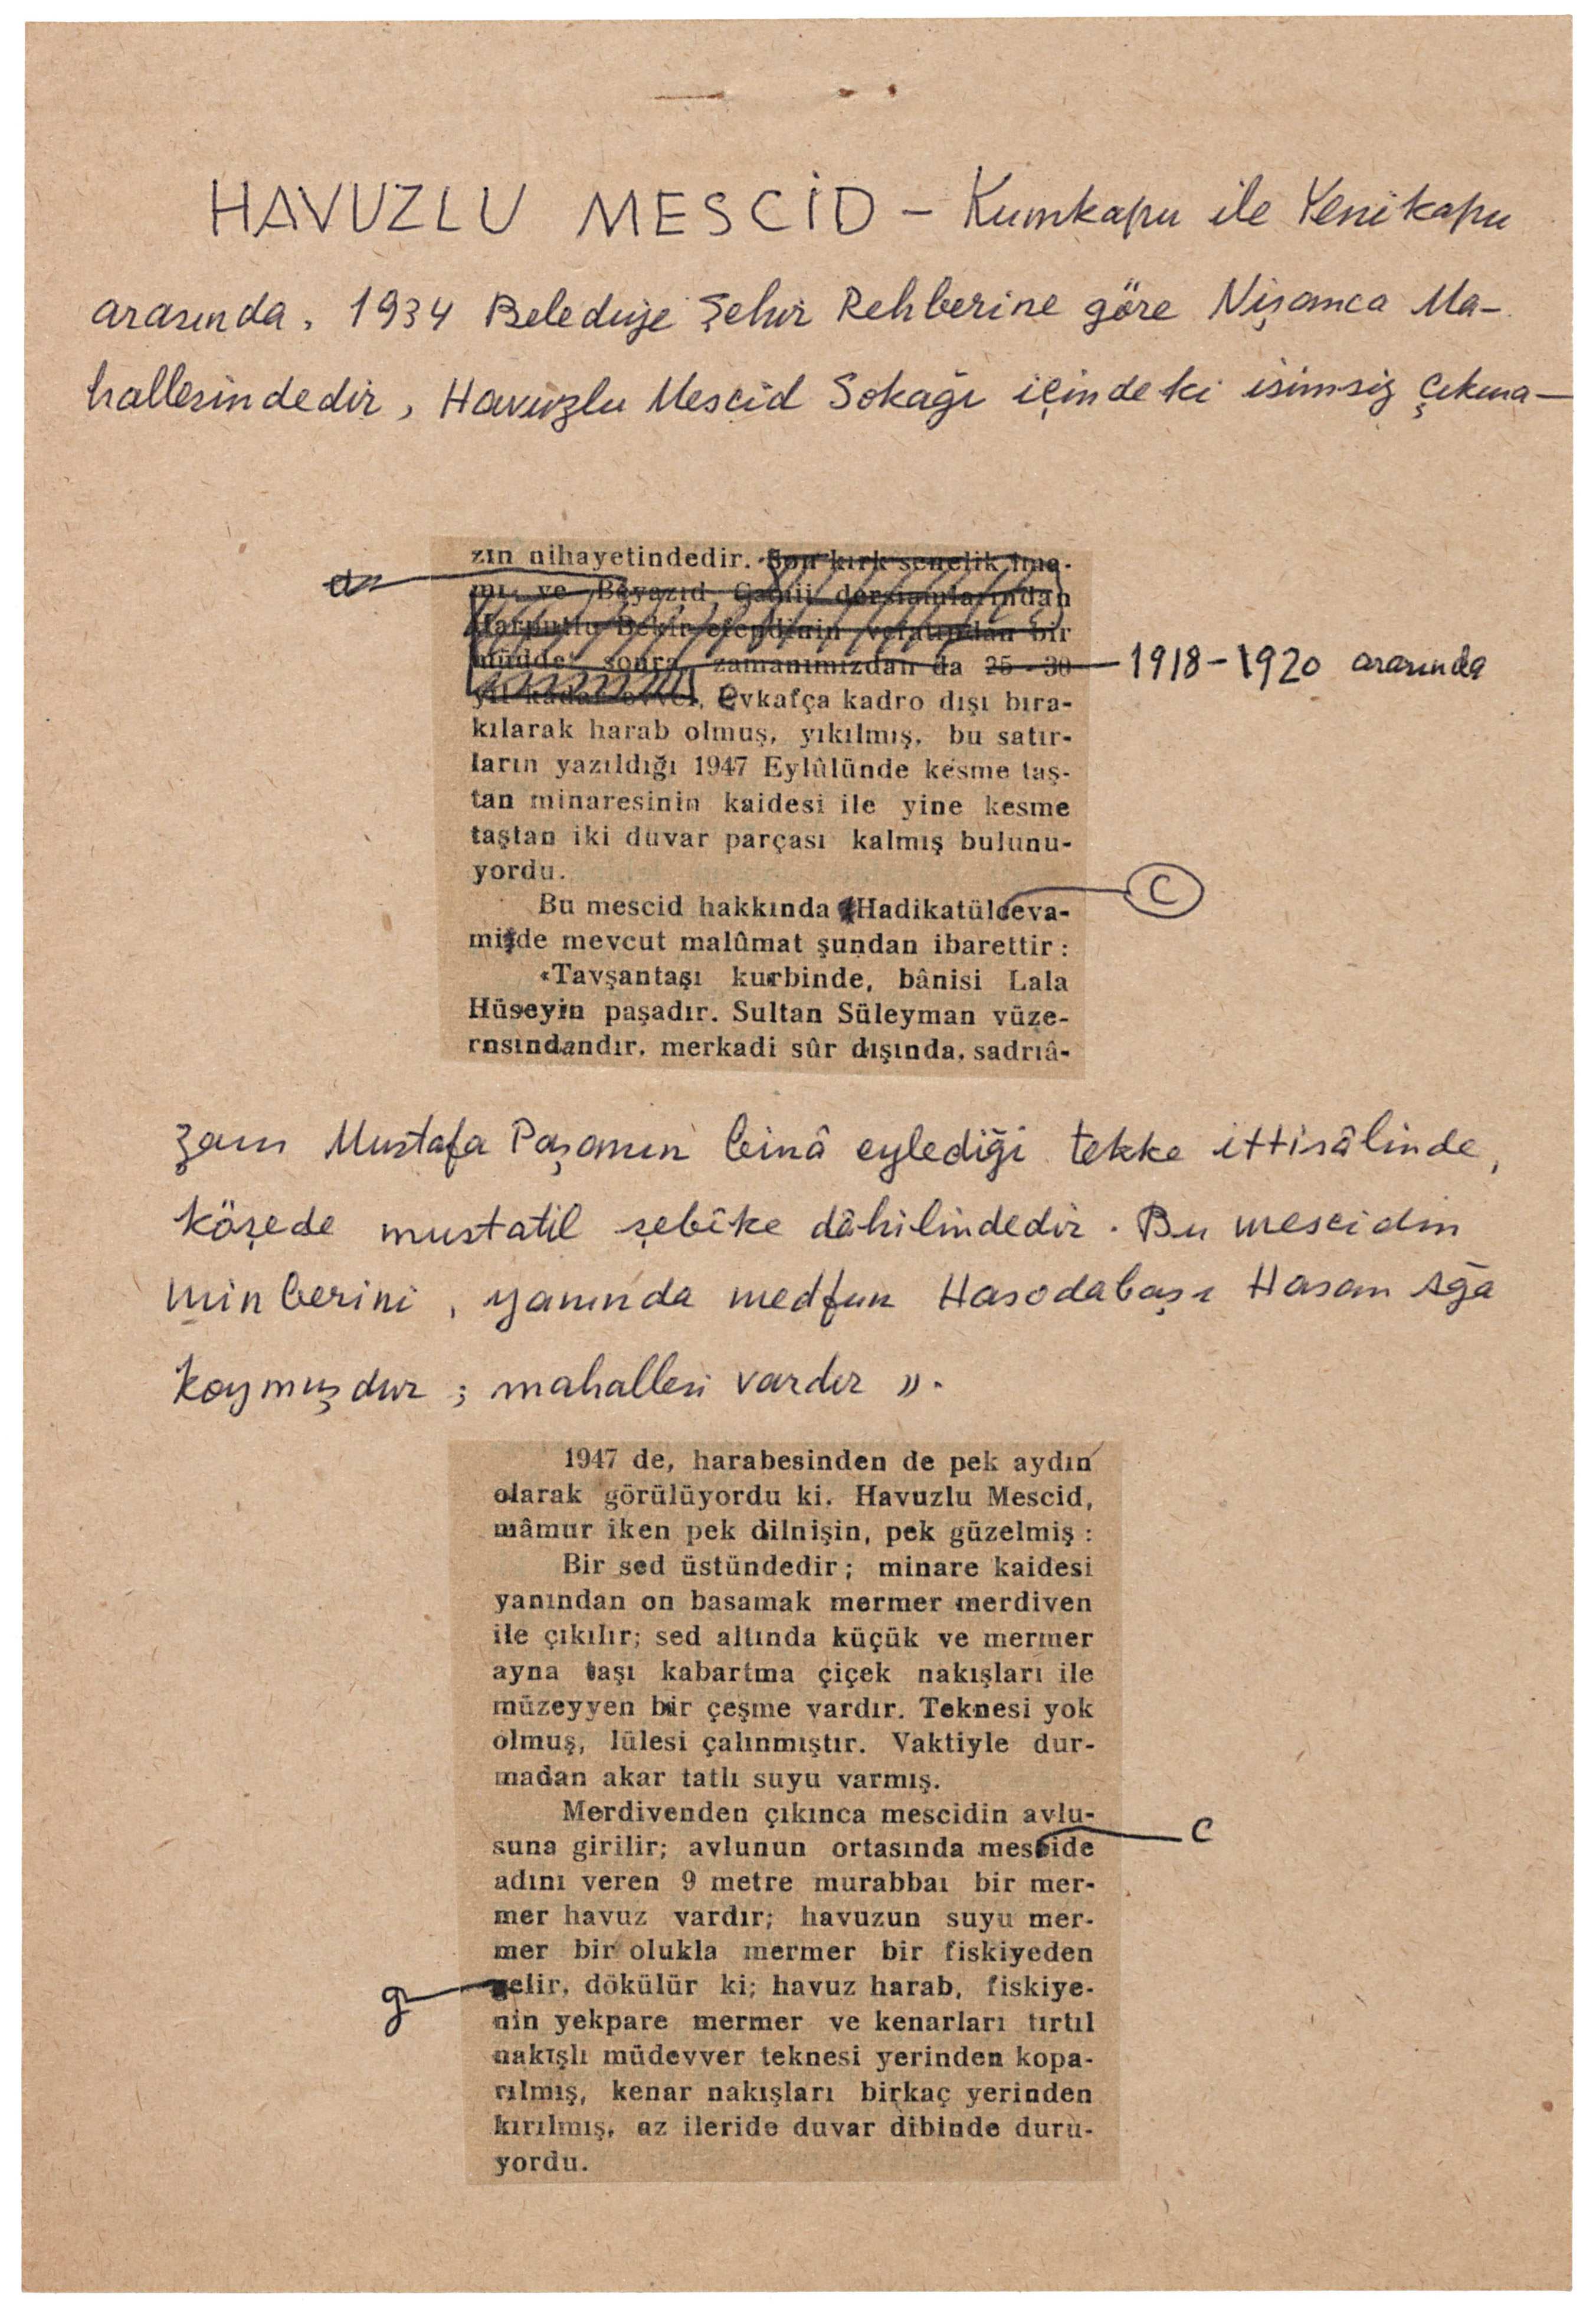 HAVUZLU MESCİD – Kumkapu ile Yenikapu
arasında, 1934 Belediye Şehir Rehberine göre Nişanca Ma-
hallesindedir, Havuzlu Mescid Sokağı içindeki isimsiz çıkma-
zın nihayetindedir. Son kırk senelik ima-
mı ve Beyazıd Camii dersiamlarından
Bekir efendinin vefatından bir
müddet sonra, zamanımızdan da 25 - 30
1918-1920 arasında
yıl kadar evvel, evkafça kadro dışı bıra-
kılarak harab olmuş, yıkılmış, bu satır-
ların yazıldığı 1947 Eylûlünde kesme taş-
tan minaresinin kaidesi ile yine kesme
taştan iki duvar parçası kalmış bulunu-
yordu.
C
Bu mescid hakkında Hadikatülceva-
mide mevcut malûmat şundan ibarettir :
«Tavşantaşı kurbinde, bânisi Lala
Hüseyin paşadır. Sultan Süleyman vüze-
rasındandır, merkadi sûr dışında, sadrıâ-
zam Mustafa Paşanın binâ eylediği tekke ittisâlinde,
köşede mustatil şebîke dâhilindedir. Bu mescidin
minberini, yanında medfun Hasodabaşı Hasan Ağa
koymuşdur ; mahallesi vardır ».
1947 de, harabesinden de pek aydın
olarak görülüyordu ki, Havuzlu Mescid,
mâmur iken pek dilnişin, pek güzelmiş :
Bir sed üstündedir; minare kaidesi
yanından on basamak mermer merdiven
ile çıkılır; sed altında küçük ve mermer
ayna taşı kabartma çiçek nakışları ile
müzeyyen bir çeşme vardır. Teknesi yok
olmuş, lülesi çalınmıştır. Vaktiyle dur-
madan akar tatlı suyu varmış.
Merdivenden çıkınca mescidin avlu-
suna girilir; avlunun ortasında mescide
c
adını veren 9 metre murabbaı bir mer-
mer havuz vardır; havuzun suyu mer-
mer bir olukla mermer bir fiskiyeden
g
gelir, dökülür ki; havuz harab, fiskiye-
nin yekpare mermer ve kenarları tırtıl
nakışlı müdevver teknesi yerinden kopa-
rılmış, kenar nakışları birkaç yerinden
kırılmış, az ileride duvar dibinde duru-
yordu.